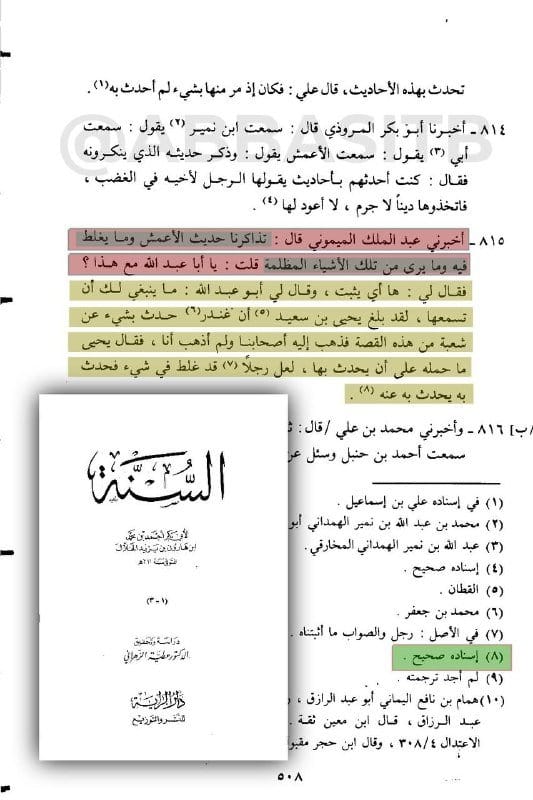 تحدث بهذه الأحاديث، قال علي : فكان إذ مر منها بشيء لم أحدث به(١) .
٨١٤ ـ أخبرنا أبو بكر المروذي قال : سمعت ابن نمير (٢) يقول : سمعت
أبي (٣) يقول : سمعت الأعمش يقول : وذكر حديثه الذي ينكرونه
فقال : كنت أحدثهم بأحاديث يقولها الرجل لأخيه في الغضب ،
فاتخذوها ديناً لا جرم ، لا أعود لها (٤) .
٨١٥ ـ أخبرني عبد الملك الميموني قال : تذاكرنا حديث الأعمش وما يغلط
فيه وما يرى من تلك الأشياء المظلمة قلت : يا أبا عبد الله مع هذا ؟
فقال لي : ها أي يثبت ، وقال لي أبو عبد الله : ما ينبغي لك أن
تسمعها ، لقد بلغ يحيى بن سعيد (٥) أن غندر(٦) حدث بشيء عن
شعبة من هذه القصة فذهب إليه أصحابنا ولم أذهب أنا ، فقال يحيى
ما حمله على أن يحدث بها ، لعل رجلاً (٧) قد غلط في شيء فحدث
به يحدث به عنه (٨) .
/ب] ٨١٦ ـ وأخبرني محمد بن علي /قال :
سمعت أحمد بن حنبل وسئل
(١) في إسناده علي بن إسماعيل .
(٢) محمد بن عبد الله بن نمير الهمداني أبو
(٣) عبد الله بن نمير الهمداني المخارقي .
(٤) إسناده صحيح .
(٥) القطان .
(٦) محمد بن جعفر .
(٧) في الأصل : رجل والصواب ما أثبتناه .
(٨) إسناده صحيح .
(٩) لم أجد ترجمته .
(١٠) همام بن نافع اليماني أبو عبد الرازق ،
عبد الرزاق ، قال ابن معين ثقة
الاعتدال ٣٠٨/٤ ، وقال ابن حجر مقبو
٥٠٨
السنة
لأبي بكر أحمد بن محمد
ابن هارون بن يزيد الخلال
المتوفى سنة ٣١١هـ
(١-٣)
دراسة وتحقيق
الدكتور عطية الزهراني
دار الراية
للنشر والتوزيع